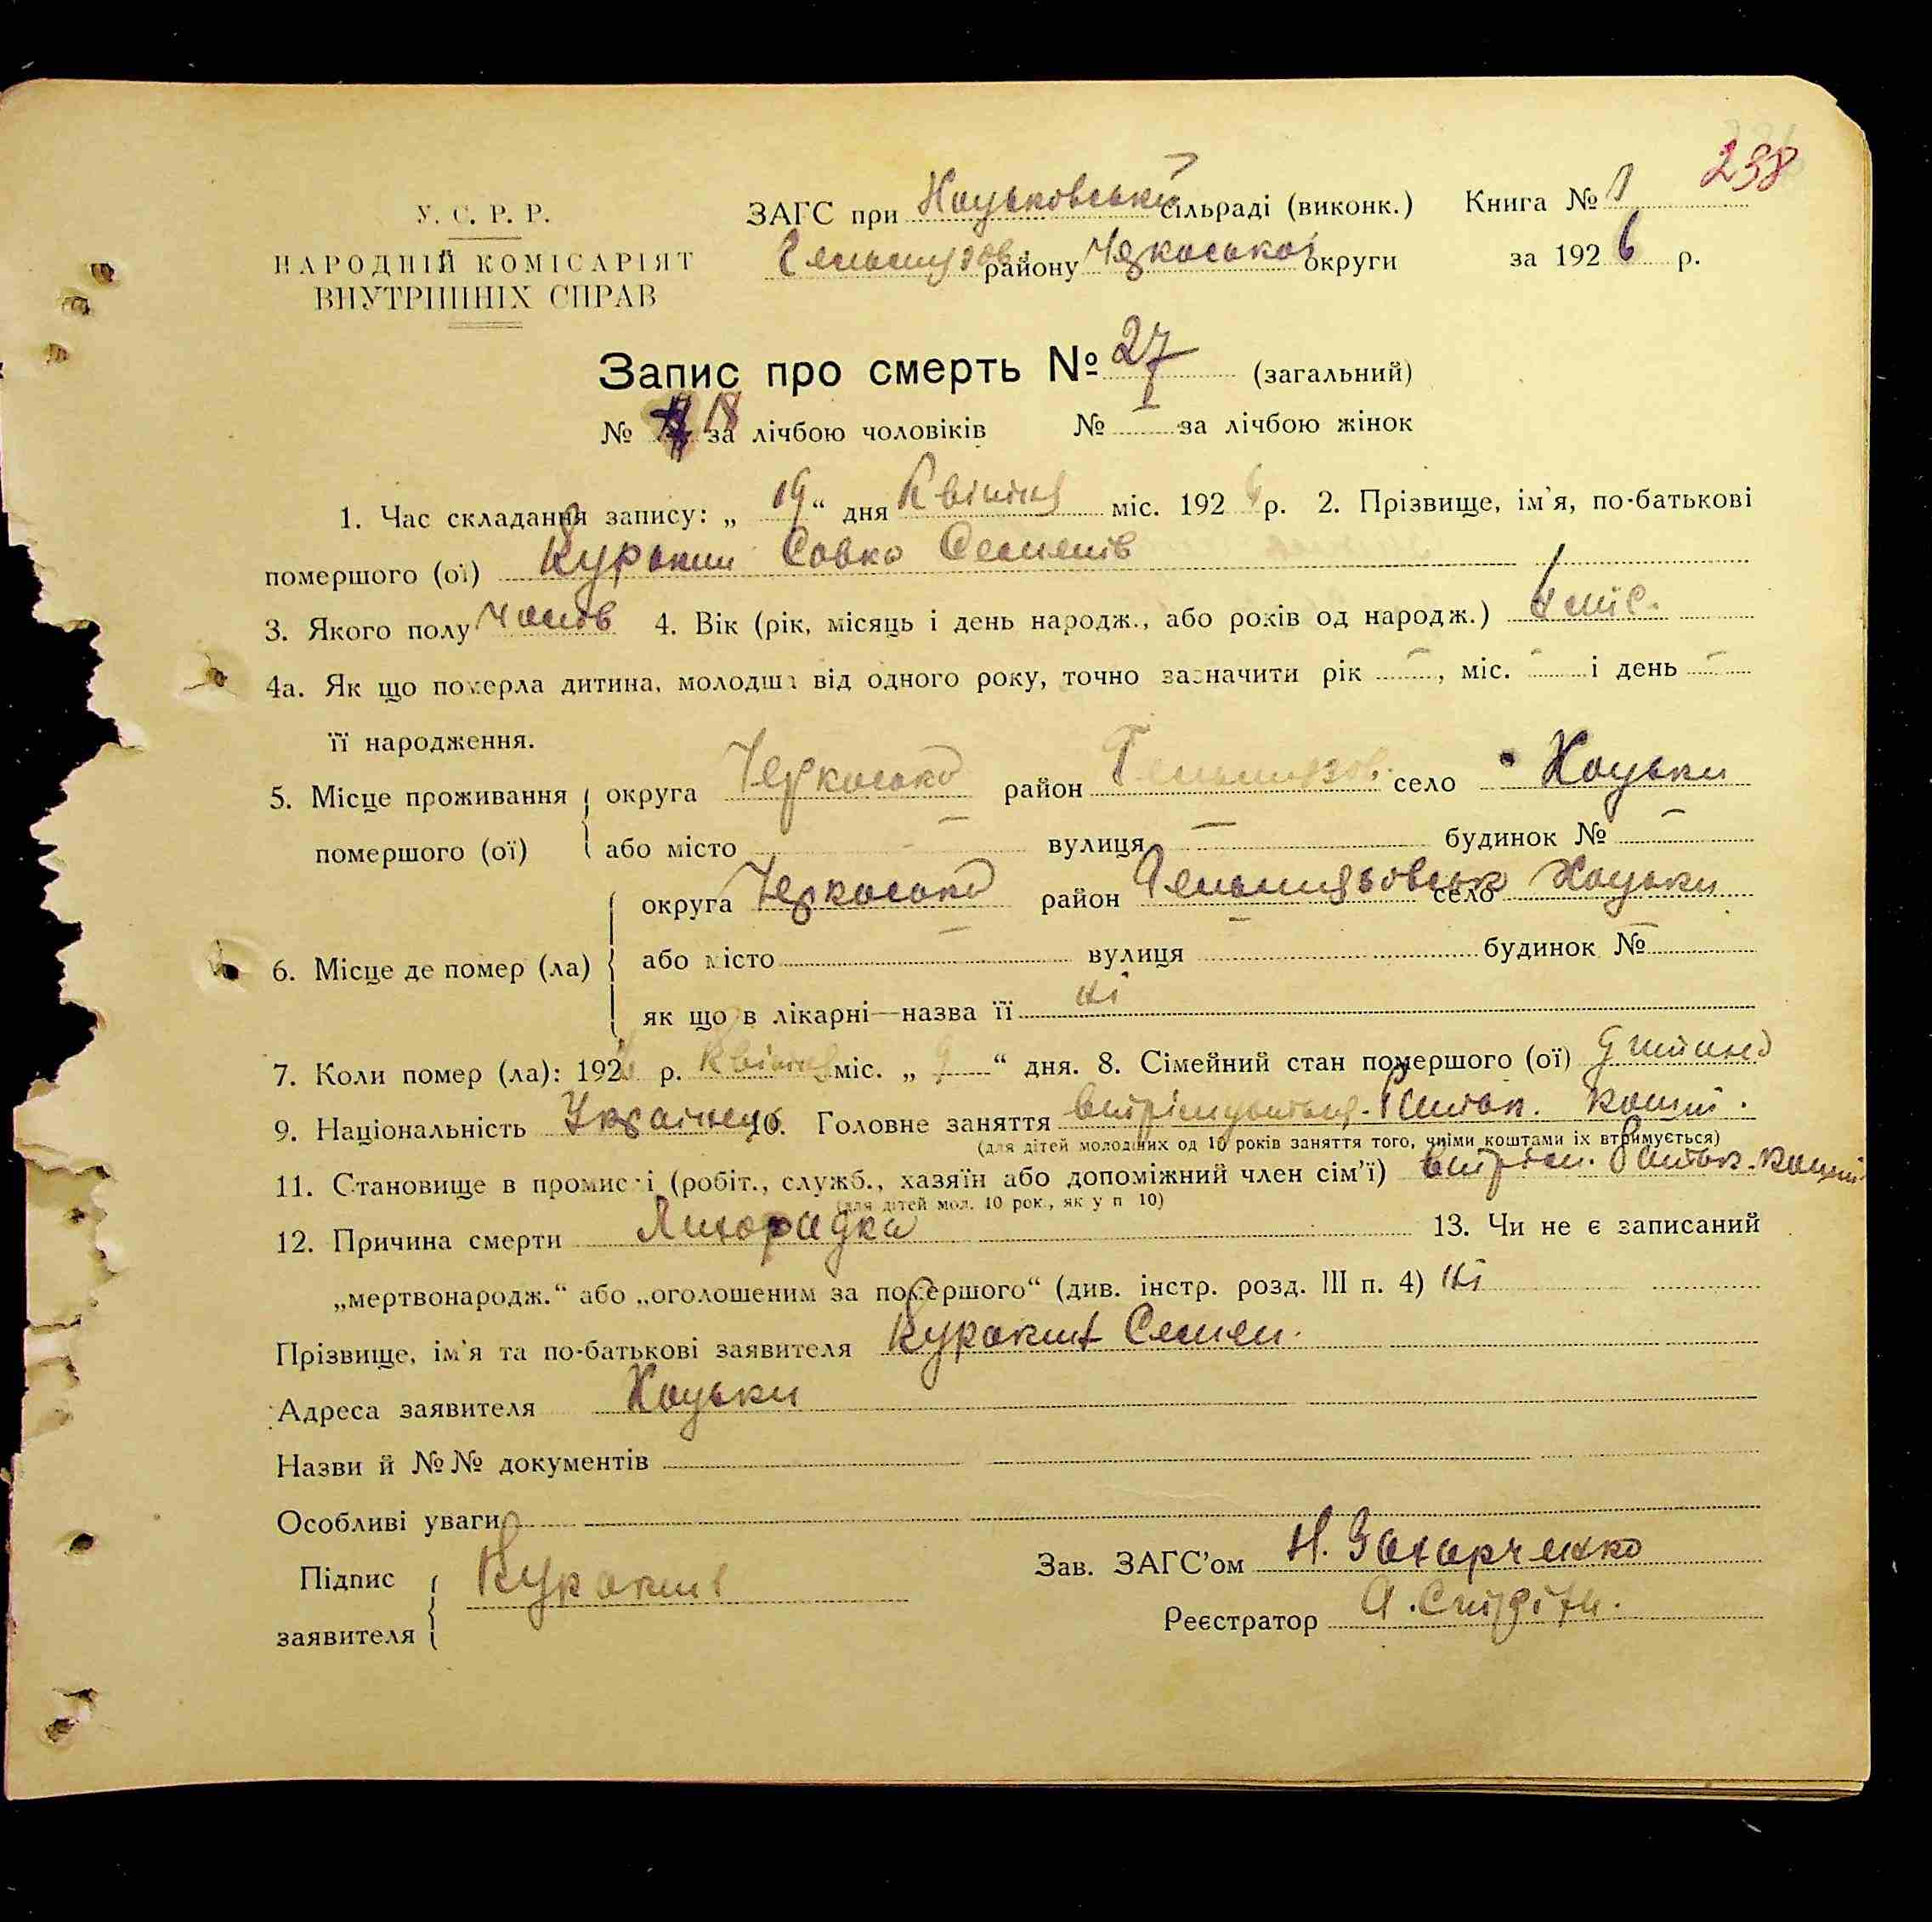 238
У. С. Р. Р.
НАРОДНІЙ КОМІСАРІЯТ
ВНУТРІШНІХ СПРАВ
ЗАГС при Хоцьковській сільраді (виконк.) Книга № 1
Гельмязов. району Черкаської округи за 1926 р.
Запис про смерть № 27 (загальний)
№ 18 за лічбою чоловіків № — за лічбою жінок
1. Час складання запису: „19“ дня Квітня міс. 1926 р. 2. Прізвище, ім'я, по-батькові
помершого (ої) Куракин Совко Семенів
3. Якого полу Чолов 4. Вік (рік, місяць і день народж., або років од народж.) міс.
4а. Як що померла дитина, молодша від одного року, точно зазначити рік —, міс. — і день —
її народження.
5. Місце проживання округа Черкаська район Гельмязов. село Хоцьки
помершого (ої) або місто — вулиця — будинок № —
6. Місце де помер (ла) округа Черкаська район Гельмязовськ село Хоцьки
або місто — вулиця — будинок № —
як що в лікарні—назва її ні
7. Коли помер (ла): 1926 р. Квітня міс. „9“ дня. 8. Сімейний стан помершого (ої)
9. Національність Українець 10. Головне заняття
(для дітей молодших од 10 років заняття того, чиїми коштами їх втримується)
11. Становище в промислі (робіт., служб., хазяїн або допоміжний член сім'ї)
(для дітей мол. 10 рок., як у п 10)
12. Причина смерти Лихорадка 13. Чи не є записаний
„мертвонародж.“ або „оголошеним за помершого“ (див. інстр. розд. III п. 4) ні
Прізвище, ім'я та по-батькові заявителя Куракин Семен.
Адреса заявителя Хоцьки
Назви й №№ документів
Особливі уваги
Підпис заявителя Куракин
Зав. ЗАГС'ом Н. Захарченко
Реєстратор